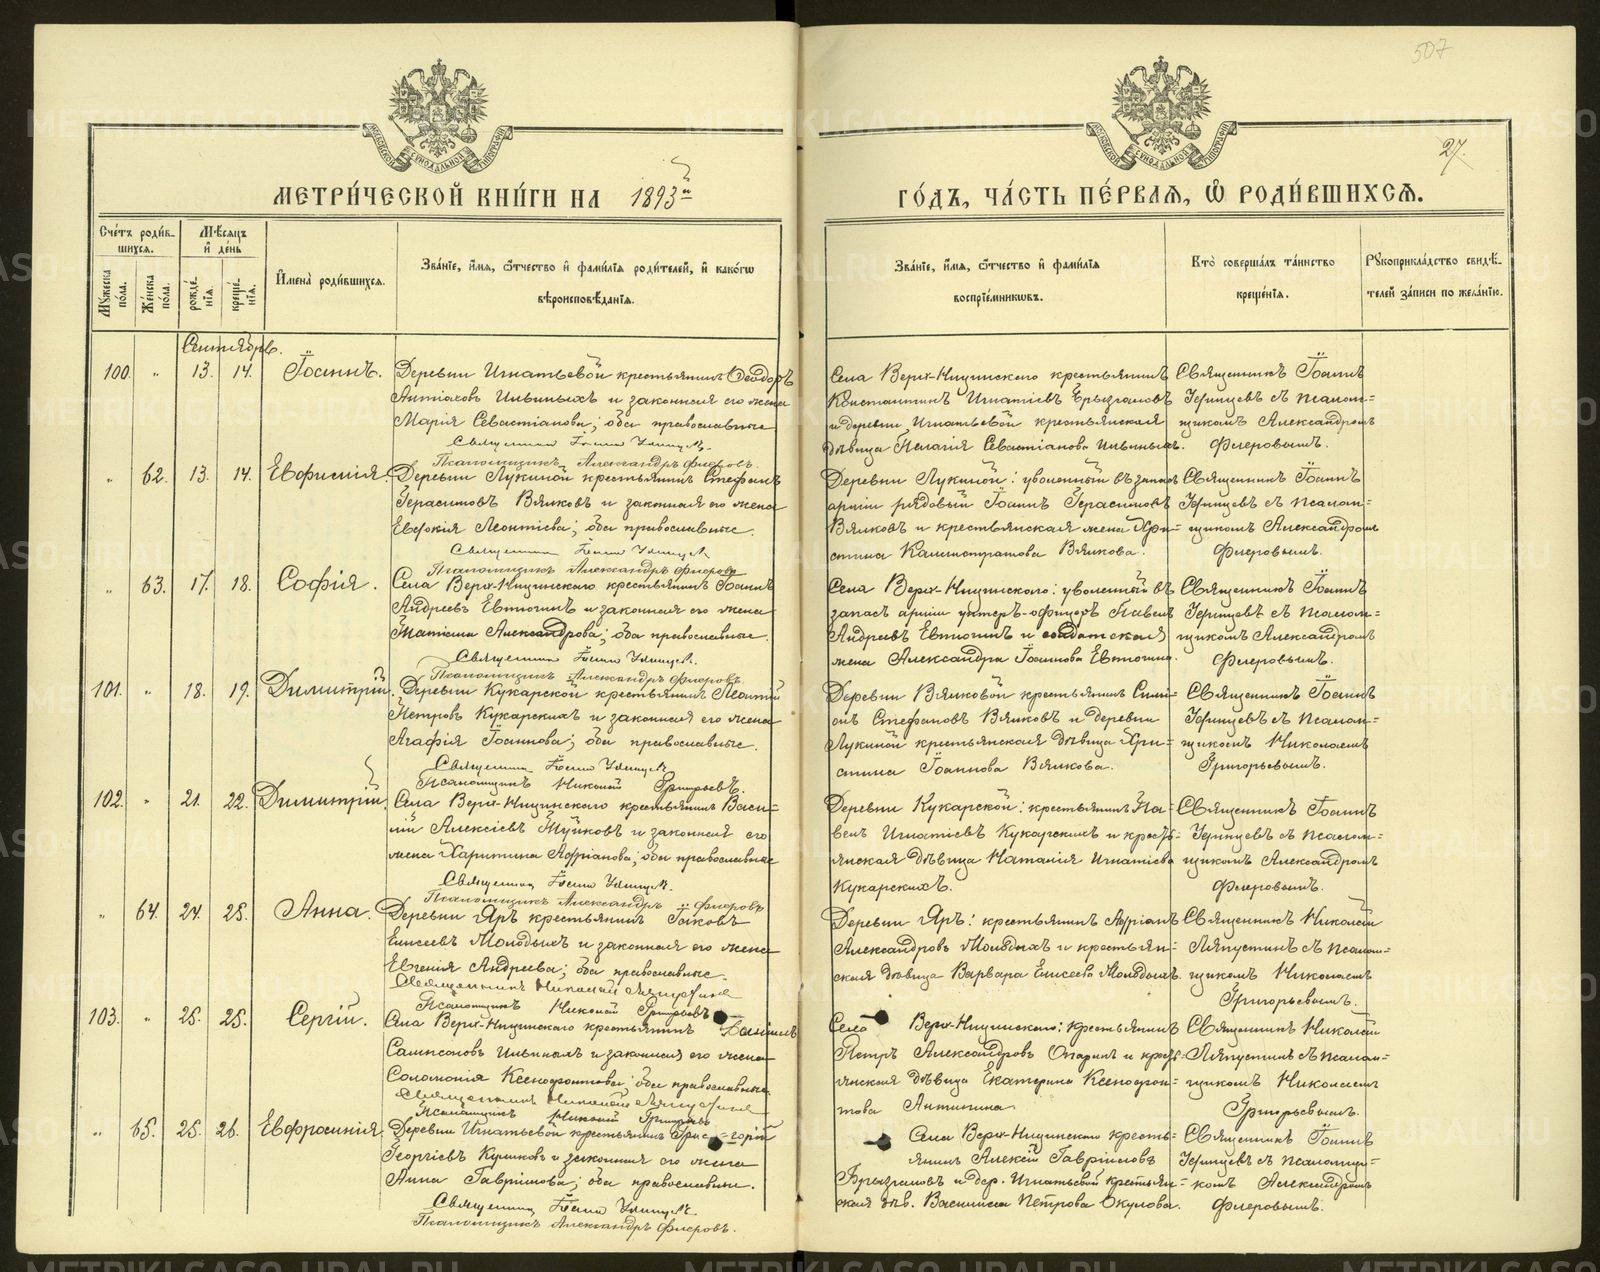 507
27.
МЕТРИ́ЧЕСКОЙ КНИ́ГИ НА 1893й
ГО́ДЪ, ЧА́СТЬ ПЕ́РВАЯ, Ѡ РОДИ́ВШИХСЯ.
Сче́тъ роди́в-
шихся.
Мѣ́сяцъ
и҆ де́нь
Му́жеска
по́ла.
Же́нска
по́ла.
рожде́-
нїя.
креще́-
нїя.
И҆мена̀ роди́вшихся.
Зва́нїе, и҆́мя, ѻ҆́тчество и҆ фами́лїя роди́телей, и҆ како́гѡ
вѣроисповѣ́данїя.
Зва́нїе, и҆́мя, ѻ҆́тчество и҆ фами́лїя
воспрїе́мникѡвъ.
Кто̀ соверша́лъ та́инство
креще́нїя.
Рꙋкоприкла́дство свидѣ́-
телей за́писи по жела́нїю.
Сентябрь.
100. " 13. 14. Іоаннъ.
Деревни Игнатьевой крестьянинъ Ѳеодоръ
Антіоховъ Ильиныхъ и законная его жена
Марія Севастіанова; оба православные
Священникъ Іоаннъ
Псаломщикъ Александръ Флеровъ.
Села Верх-Ницинскаго крестьянинъ
Константинъ Игнатіевъ Брызгаловъ
и деревни Игнатьевой крестьянская
дѣвица Пелагія Севастіанова Ильиныхъ.
Священникъ Іоаннъ
съ псалом-
щикомъ Александромъ
Флеровымъ.
" 62. 13. 14. Евфимія.
Деревни Лукиной крестьянинъ Стефанъ
Герасимовъ Вялковъ и законная его жена
Евдокія Леонтіева; оба православные.
Священникъ Іоаннъ
Псаломщикъ Александръ Флеровъ
Деревни Лукиной: уволенный въ запасъ
арміи рядовый Іоаннъ Герасимовъ
Вялковъ и крестьянская жена Хри-
стина Каллистратова Вялкова.
Священникъ Іоаннъ
съ псалом-
щикомъ Александромъ
Флеровымъ.
" 63. 17. 18. Софія.
Села Верх-Ницинскаго крестьянинъ Іоаннъ
Андреевъ Евтюгинъ и законная его жена
Татіана Александрова; оба православные.
Священникъ Іоаннъ
Псаломщикъ Александръ Флеровъ.
Села Верх-Ницинскаго: уволенный въ
запасъ арміи унтеръ-офицеръ Павелъ
Андреевъ Евтюгинъ и солдатская
жена Александра Іоаннова Евтюгина.
Священникъ Іоаннъ
съ псалом-
щикомъ Александромъ
Флеровымъ.
101. " 18. 19. Димитрій.
Деревни Кукарской крестьянинъ Леонтій
Петровъ Кукарскихъ и законная его жена
Агафія Іоаннова; оба православные.
Священникъ Іоаннъ
Псаломщикъ Николай Григорьевъ.
Деревни Вялковой крестьянинъ Сими-
онъ Стефановъ Вялковъ и деревни
Лукиной крестьянская дѣвица Хри-
стина Іоаннова Вялкова.
Священникъ Іоаннъ
съ псалом-
щикомъ Николаемъ
Григорьевымъ.
102. " 21. 22. Димитрій.
Села Верх-Ницинскаго крестьянинъ Васи-
лій Алексіевъ и законная его
жена Харитина Адріанова; оба православные
Священникъ Іоаннъ
Псаломщикъ Александръ Флеровъ
Деревни Кукарской: крестьянинъ Па-
велъ Игнатіевъ Кукарскихъ и кресть-
янская дѣвица Наталія Игнатіева
Кукарскихъ.
Священникъ Іоаннъ
съ псалом-
щикомъ Александромъ
Флеровымъ.
" 64. 24. 25. Анна.
Деревни Яръ крестьянинъ Іаковъ
Елисеевъ Молодыхъ и законная его жена
Евгенія Андреева; оба православные.
Священникъ Николай Ляпустинъ
Псаломщикъ Николай Григорьевъ
Деревни Яръ: крестьянинъ Адріанъ
Александровъ Молодыхъ и крестьян-
ская дѣвица Варвара Елисеева Молодыхъ.
Священникъ Николай
Ляпустинъ съ псалом-
щикомъ Николаемъ
Григорьевымъ.
103. " 25. 25. Сергій.
Села Верх-Ницинскаго крестьянинъ
Сампсоновъ Ильиныхъ и законная его жена
Соломонія Ксенофонтова; оба православные.
Священникъ Николай Ляпустинъ
Псаломщикъ Николай Григорьевъ
Села Верх-Ницинскаго: крестьянинъ
Петръ Александровъ Опаринъ и кресть-
янская дѣвица Екатерина Ксенофон-
това Антипина.
Священникъ Николай
Ляпустинъ съ псалом-
щикомъ Николаемъ
Григорьевымъ.
" 65. 25. 26. Евфросинія.
Деревни Игнатьевой крестьянинъ Гри-горій
Георгіевъ Куликовъ и законная его жена
Анна Гавріилова; оба православные.
Священникъ Іоаннъ
Псаломщикъ Александръ Флеровъ.
Села Верх-Ницинскаго кресть-
янинъ Алексій Гавріиловъ
Брызгаловъ и дер. Игнатьевой крестьян-
ская дѣв. Василисса Петрова Окулова.
Священникъ Іоаннъ
съ псаломщи-
комъ Александромъ
Флеровымъ.
METRIKI.GASO-URAL.RU